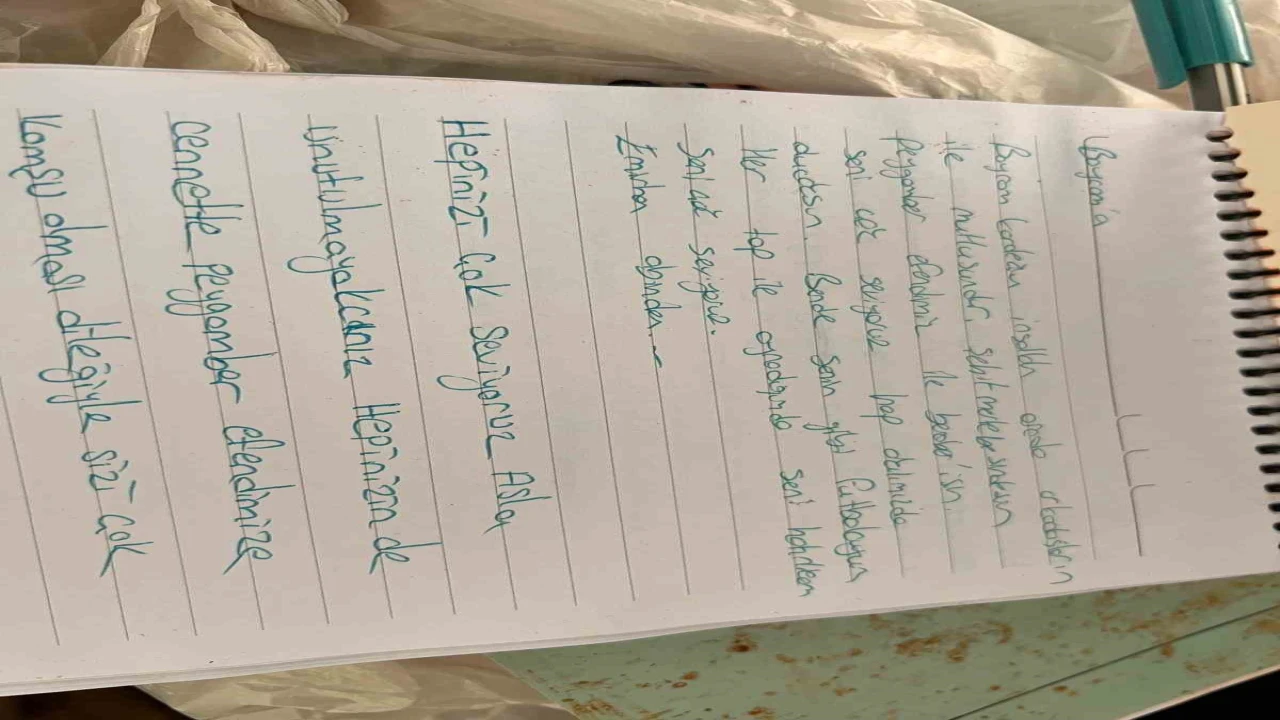 Bayram kardeşim inşallah orada arkadaşların
ile mutlusundur, şehit mertebesindesin
peygamber efendimiz ile beraber'sin.
seni çok seviyoruz hep dalimizde
duadasın. Bende senin gibi futbolcuyum
Her top ile oynadığımda seni
Seni çok seviyoruz.
Hepinizi Çok Seviyoruz Asla
unutulmayakcanız Hepinizin de
cennette peygamber efendimize
Komşu olması dileğiyle sizi çok